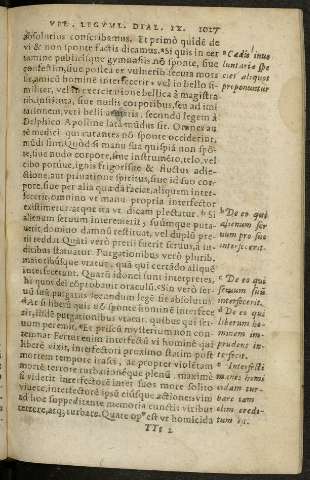 VEL LEGVM. DIAL. IX. 1017
absolutius conscribamus. Et primò quidē de
vi & non sponte factis dicamus. Si quis in cer
tamine publicisque gymnasiis nō sponte, siue
confestim, siue postea ex vulneris secuta mors
sit, amicū hominē interfecerit: vel in bello si-
militer, vel in exercitatione bellica à magistra
tibus
siue nudis corporibus, seu ad imi
tationem, veri belli armatis, secundū legem à
Delphico Apolline latā mūdus sit. Omnes au
tē medici qui curantes nō sponte occiderint,
mūdi sint. Quòd si manu sua quispiā non spō-
te, siue nudo corpore, siue instrumēto, telo, vel
cibo potúve, ignis frigorisúe & fluctus adie-
ctione, aut priuatione spiritus, siue ad suo cor-
pore, siue per alia quædā faciat, aliquem inter-
fecerit, omnino vt manu propria interfector
existimetur: atque ita vt dicam plectatur. Si
alienum seruum interemerit, suúmque puta-
uerit domino damnū restituat, vel duplū pre-
tii reddat. Quāti verò pretii fuerit seruus, à iu-
dicibus statuatur. Purgationibus verò pluribus
maioribúsque vtatur, quā qui certādo aliquē
interfecerunt. Quarū idonei sunt interpretes,
hi quos dei cōprobauit oraculū. Sin verò ser-
uū suū, purgatus secundum legē sit absolutus.
At si liberū quis nō sponte hominē interfece
rit, iisdē purgationibus vtatur, quibus qui ser-
uum peremit. Et priscū mysterium non con-
temnat. Ferunt enim interfectū vi hominē qui
liberè vixit, interfectori proximo statim post
mortem tempore irasci, ac propter violētam
mortē terrore turbationéque plenū, maximè
sū viderit interfectorē inter suos more solito
viuere, interfectorē ipsū eiúsque actiones vim
ad hoc suppeditante memoria cunctis viribus
terrere, atq; turbare. Quare opº est vt homicida
TTt 2
Cædis inuo
luntariæ spe
cies aliquot
proponuntur
De eo qui
alienum ser
uum pro suo
interfecerit.
De eo qui
seruum suū
interfecerit.
De eo qui
liberum ho-
minem im-
prudens in-
terfecit.
Interfecti
manes homi
cidam tur-
bare tam
olim credi-
tum est.